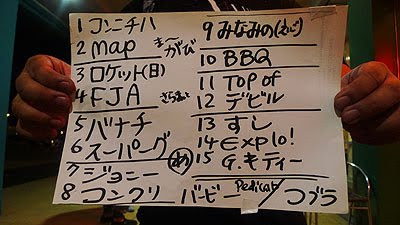 1 コンニチハ
2 map
3 ロケット(日)
4 FJA
5 バナチ
6 スーパーグ
7 ジョニー
8 コンフリ
9 みなみの
10 BBQ
11 TOP of
12 デビル
13 すし
14 Explo!
15 G.キティー
バービー
Pedicab/コブラ